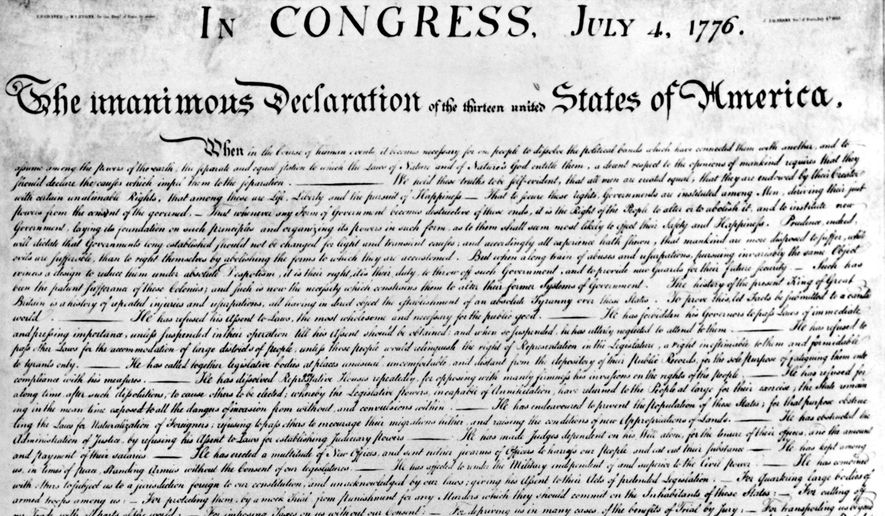 IN CONGRESS, JULY 4, 1776.
The unanimous Declaration of the thirteen united States of America,
When in the Course of human events it becomes necessary for one people to dissolve the political bands which have connected them with another, and to
assume among the powers of the earth, the separate and equal station to which the Laws of Nature and of Nature's God entitle them, a decent respect to the opinions of mankind requires that they
should declare the causes which impel them to the separation. — We hold these truths to be self-evident, that all men are created equal, that they are endowed by their Creator
with certain unalienable Rights, that among these are Life, Liberty and the pursuit of Happiness — That to secure these rights, Governments are instituted among Men, deriving their just
powers from the consent of the governed, — That whenever any Form of Government becomes destructive of these ends, it is the Right of the People to alter or to abolish it, and to institute new
Government, laying its foundation on such principles and organizing its powers in such form, as to them shall seem most likely to effect their Safety and Happiness. Prudence, indeed,
will dictate that Governments long established should not be changed for light and transient causes; and accordingly all experience hath shewn, that mankind are more disposed to suffer, while
evils are sufferable, than to right themselves by abolishing the forms to which they are accustomed. But when a long train of abuses and usurpations, pursuing invariably the same Object
evinces a design to reduce them under absolute Despotism, it is their right, it is their duty, to throw off such Government, and to provide new Guards for their future security — Such has
been the patient sufferance of these Colonies; and such is now the necessity which constrains them to alter their former Systems of Government. The history of the present King of Great
Britain is a history of repeated injuries and usurpations, all having in direct object the establishment of an absolute Tyranny over these States. To prove this, let Facts be submitted to a candid
world. — He has refused his Assent to Laws, the most wholesome and necessary for the public good. — He has forbidden his Governors to pass Laws of immediate
and pressing importance, unless suspended in their operation till his Assent should be obtained; and when so suspended, he has utterly neglected to attend to them. — He has refused to
pass other Laws for the accommodation of large districts of people, unless those people would relinquish the right of Representation in the Legislature, a right inestimable to them and formidable
to tyrants only. — He has called together legislative bodies at places unusual, uncomfortable, and distant from the depository of their Public Records, for the sole purpose of fatiguing them into
compliance with his measures. — He has dissolved Representative Houses repeatedly, for opposing with manly firmness his invasions on the rights of the people. — He has refused for
a long time after such dissolutions, to cause others to be elected; whereby the Legislative powers, incapable of Annihilation, have returned to the People at large for their exercise; the State remain
ing in the mean time exposed to all the dangers of invasion from without, and convulsions within. — He has endeavoured to prevent the population of these States; for that purpose obstruc
ting the Laws for Naturalization of Foreigners; refusing to pass others to encourage their migrations hither, and raising the conditions of new Appropriations of Lands. — He has obstructed the
Administration of Justice, by refusing his Assent to Laws for establishing Judiciary powers — He has made Judges dependent on his Will alone, for the tenure of their offices, and the amount
and payment of their salaries — He has erected a multitude of New Offices, and sent hither swarms of Officers to harrass our people and eat out their substance — He has kept among
us, in times of peace, Standing Armies without the Consent of our legislatures. — He has affected to render the Military independent of and superior to the Civil power. — He has combined
with others to subject us to a jurisdiction foreign to our constitution, and unacknowledged by our laws; giving his Assent to their Acts of pretended Legislation: — For Quartering large bodies of
armed troops among us: — For protecting them, by a mock Trial, from punishment for any Murders which they should commit on the Inhabitants of these States: — For cutting off
our Trade with all parts of the world: — For imposing Taxes on us without our Consent: — For depriving us in many cases, of the benefits of Trial by Jury: — For transporting us beyond